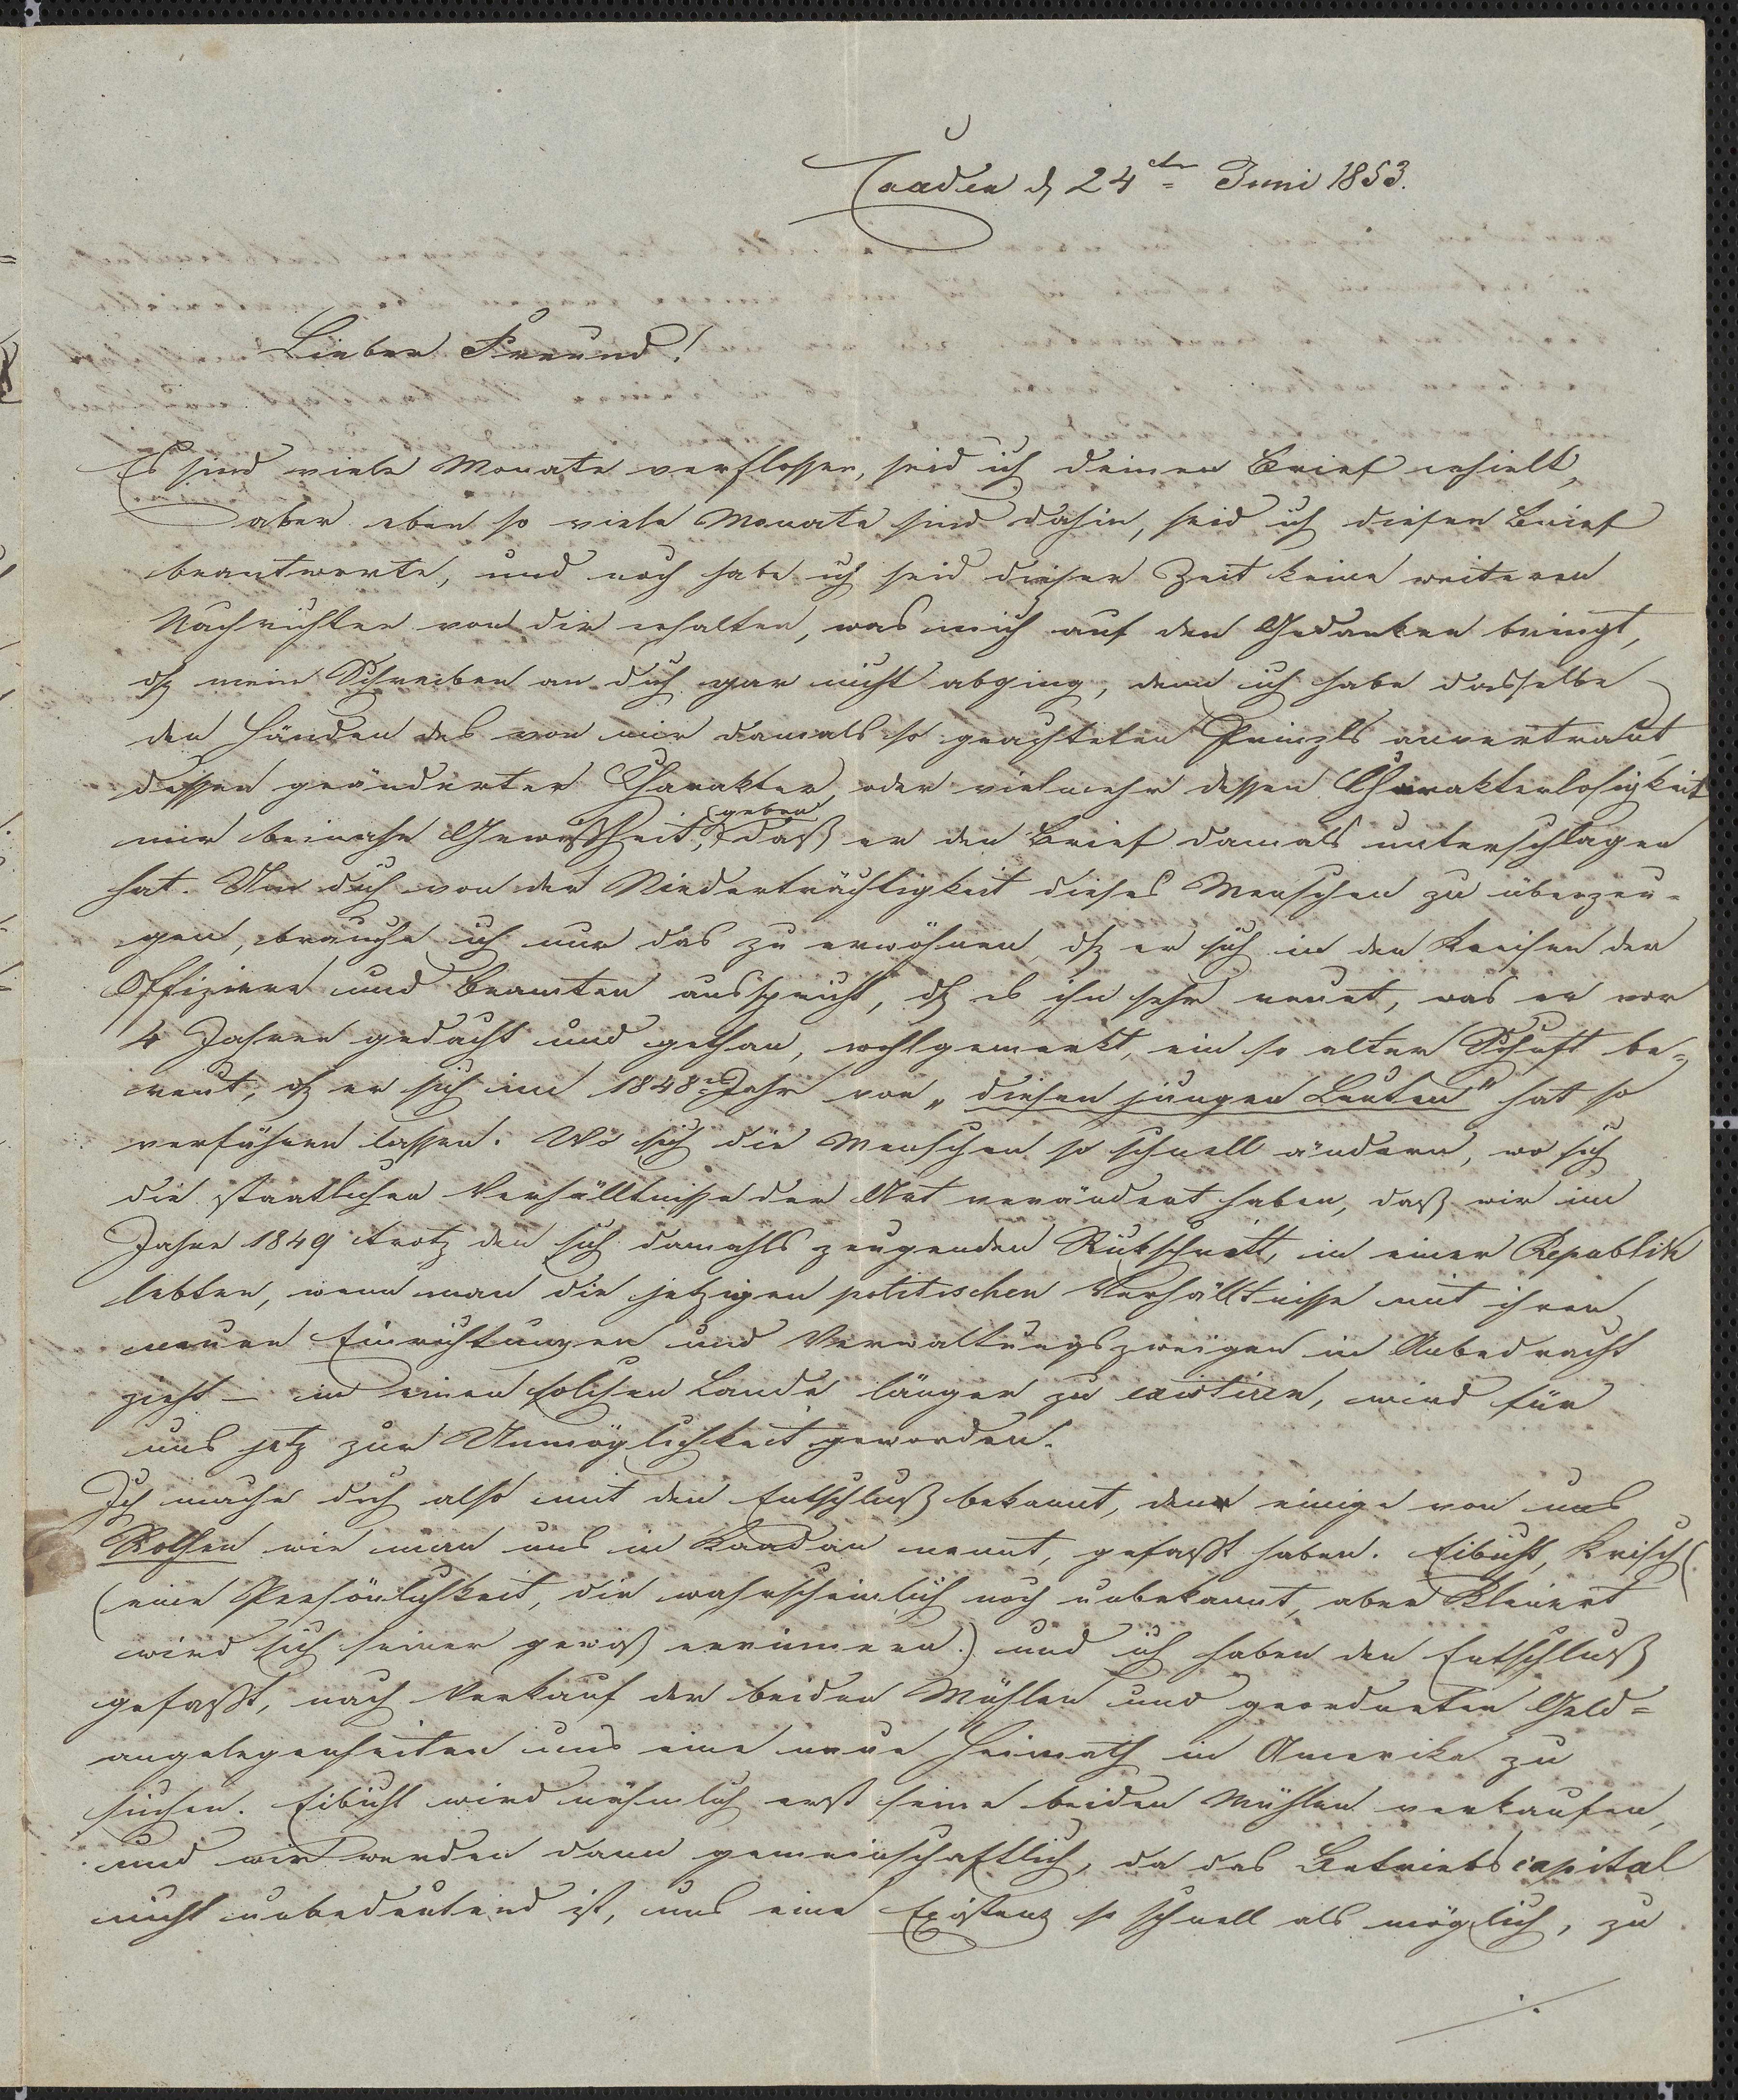 Caaden d 24ten Juni 1853.
Lieber Freund!
Es sind viele Monate verflossen, seid ich deinen Brief erhielt,
aber eben so viele Monate sind dahin, seid ich diesen Brief
beantworte, und noch habe ich seid dieser Zeit keine weiteren
Nachrichten von dir erhalten, was mich auf den Gedanken bringt,
dß mein Schreiben an dich gar nicht abging, denn ich habe dasselbe
den Händen des von mir damals so geachteten Prinzls anvertraut,
dessen geänderter Charakter, oder vielmehr dessen Charakterlosigkeit
mir beinahe Gewißheit, geben daß er den Brief damals unterschlagen
hat. Um dich von der Niederträchtigkeit dieses Menschen zu überzeu-
gen, brauche ich nur das zu erwöhnen, dß er sich in den Kreisen der
Offiziere und Beamten ausspricht, dß es ihn sehr reuet, was er vor
4 Jahren gedacht und gethan, wohlgemerkt, ein so alter Schuft be-
reut, dß er sich im 1848er Jahr von „diesen jungen Leuten" hat so
verführen lassen. Wo sich die Menschen so schnell ändern, wo sich
die staatlichen Verhälltnisse der Art verändert haben, daß wir im
Jahre 1849 trotz den sich damahls zeugenden Rükschritt, in einer Republik
lebten, wenn man die jetzigen politischen Verhälltnisse mit ihren
neuen Einrichtungen und Verwaltungszweigen in Anbedracht
zieht – in einen solchen Lande länger zu existiren, wird für
uns jetz zur Unmöglichkeit geworden.
Ich mache dich also mit den Entschluß bekannt, den einige von uns
Rothen wie man uns in Kaadan nennt, gefaßt haben. Eibicht, Krisch
(eine Persönlichkeit, dir wahrscheinlich noch unbekannt, aber Kleinert
wird sich seiner gewiß errinneren.) und ich haben den Entschluß
gefaßt, nach Verkauf der beiden Mühlen und geordneten Geld=
angelegenheiten uns eine neue Heimath in Amerika zu
suchen. Eibicht wird nähmlich erst seine beiden Mühlen verkaufen,
und wir werden dann gemeinschaftlich, da das Betriebscapital
nicht unbedeutend ist, uns eine Existenz so schnell als möglich, zu
./.